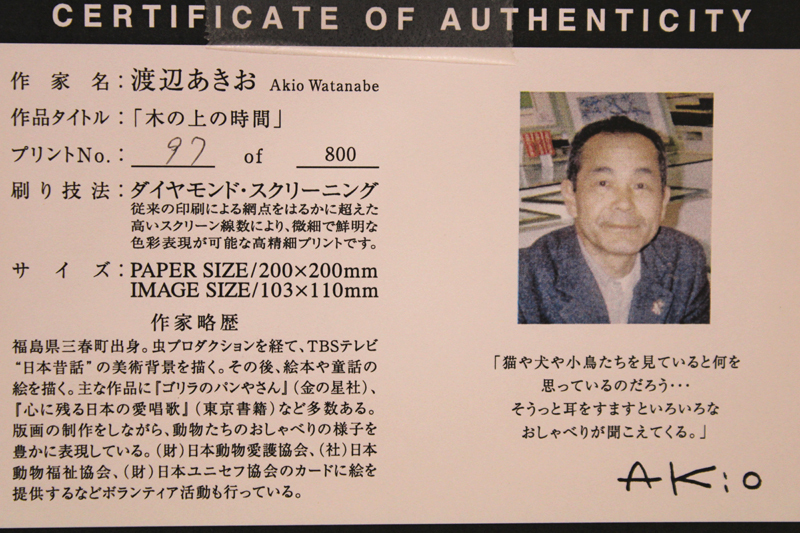 CERTIFICATE OF AUTHENTICITY
作家名：渡辺あきお Akio Watanabe
作品タイトル：「木の上の時間」
プリントNo.：97 of 800
刷り技法：ダイヤモンド・スクリーニング
従来の印刷による網点をはるかに超えた
高いスクリーン線数により、微細で鮮明な
色彩表現が可能な高精細プリントです。
サイズ：PAPER SIZE/200×200mm
IMAGE SIZE/103×110mm
作家略歴
福島県三春町出身。虫プロダクションを経て、TBSテレビ
“日本昔話”の美術背景を描く。その後、絵本や童話の
絵を描く。主な作品に『ゴリラのパンやさん』（金の星社）、
『心に残る日本の愛唱歌』（東京書籍）など多数ある。
版画の制作をしながら、動物たちのおしゃべりの様子を
豊かに表現している。（財）日本動物愛護協会、（社）日本
動物福祉協会、（財）日本ユニセフ協会のカードに絵を
提供するなどボランティア活動も行っている。
「猫や犬や小鳥たちを見ていると何を
思っているのだろう・・・
そうっと耳をすますといろいろな
おしゃべりが聞こえてくる。」
AKio